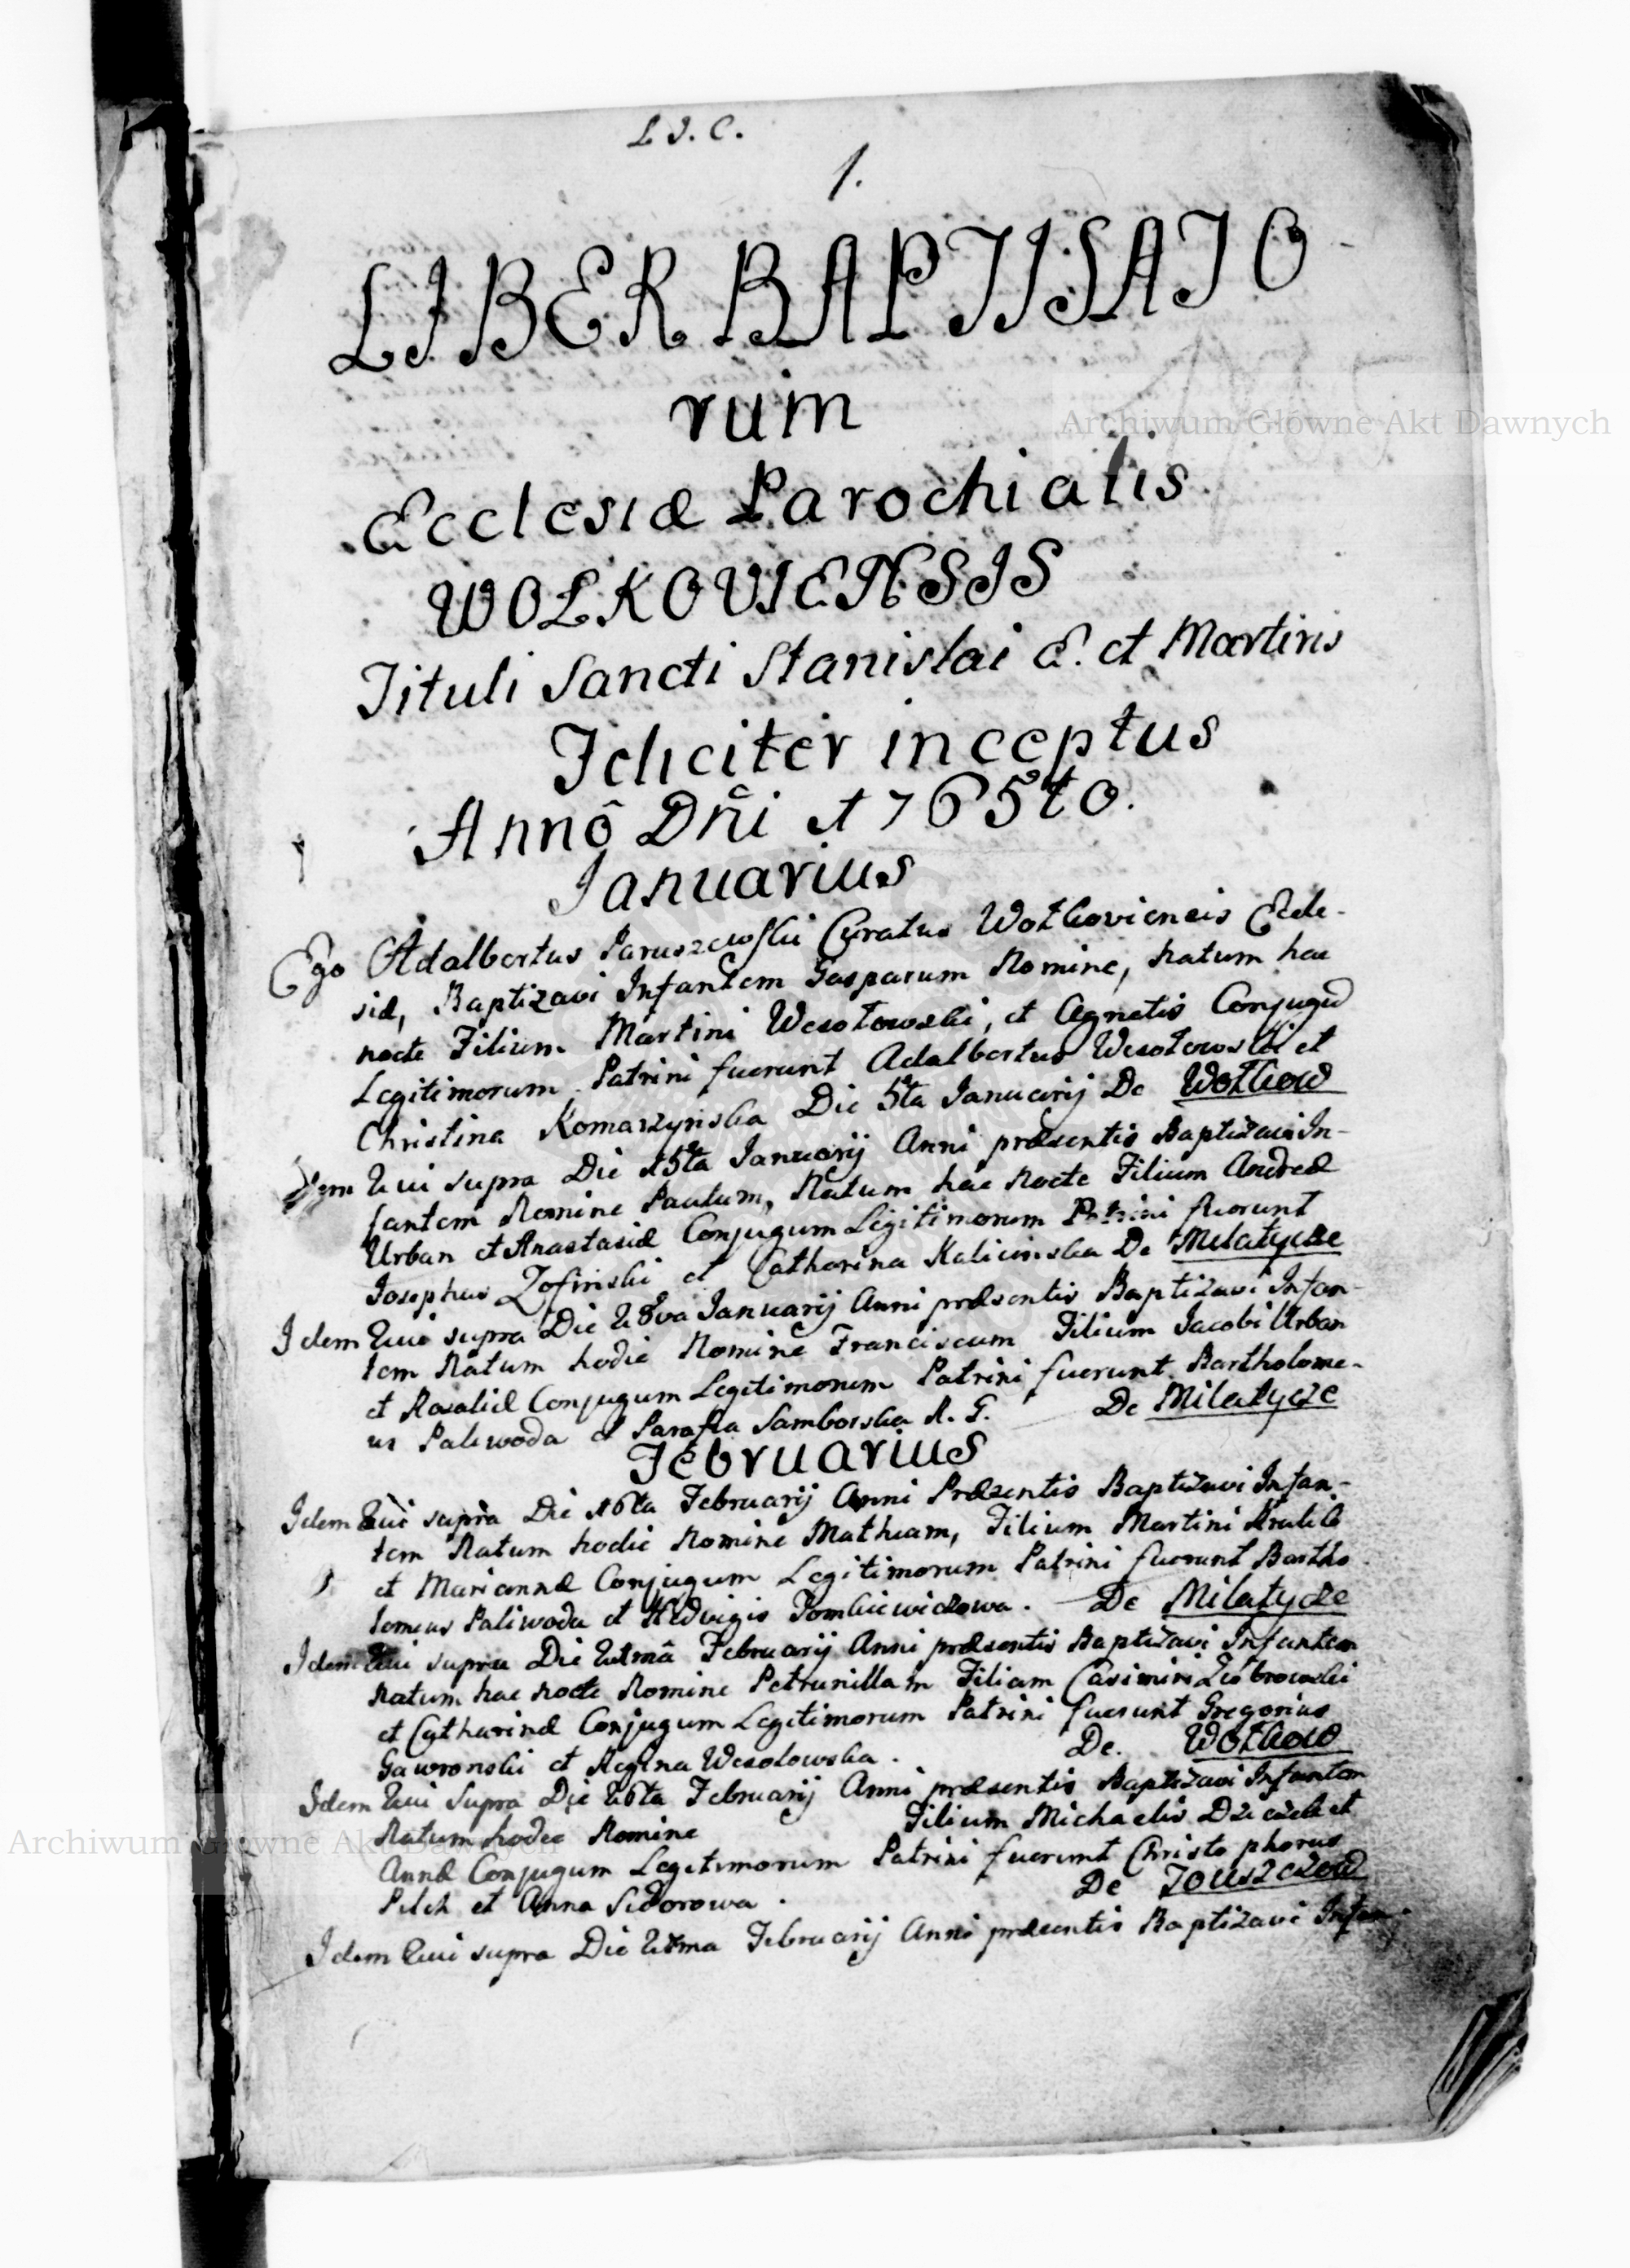 L J. C.
1.
LIBER BAPTISATO-
rum
Ecclesiæ Parochialis
WOLKOVIENSIS
Tituli Sancti Stanislai E. et Martiris
Feliciter inceptus
Annô Dñi 1765to.
Januarius
Ego Adalbertus Jaruszewski Curatus Wołkoviensis Eccle-
siæ, Baptizavi Infantem Gasparum Nomine, Natum hac
nocte Filium Martini Wesołowski, et Agnetis Conjugū
Legitimorum. Patrini fuerunt Adalbertus Wesołowski et
Christina Komarzynska Die 5ta Januarij De Wołkow
Idem Qui supra Die 15ta Januarij Anni præsentis Baptizavi In-
fantem Nomine Paulum, Natum hac Nocte Filium Andreæ
Urban et Anastasiæ Conjugum Legitimorum Patrini fuerunt
Josephus Zofinski et Catharina Kalicinska De Milatycze
Idem Qui supra Die 28va Januarij Anni præsentis Baptizavi Infan-
tem Natum hodie Nomine Franciscum Filium Jacobi Urban
et Rosaliæ Conjugum Legitimorum Patrini fuerunt Bartholome-
us Paliwoda et Parafia Samborska R. G. De Milatycze
Februarius
Idem Qui supra Die 16ta Februarij Anni Præsentis Baptizavi Infan-
tem Natum hodie Nomine Mathiam, Filium Martini
et Mariannæ Conjugum Legitimorum Patrini fuerunt Bartho
lomeus Paliwoda et Hedvigis Tomkiewiczowa. De Milatycze
Idem Qui supra Die 21mâ Februarij Anni præsentis Baptizavi Infantem
Natum hac nocte Nomine Petrunillam Filiam Casimiri
et Catharinæ Conjugum Legitimorum Patrini fuerunt Gregorius
Gawronski et Regina Wesolowska. De. Wołkow
Idem Qui Supra Die 26ta Februarij Anni præsentis Baptizavi Infantem
Natum hodie Nomine Filium Michaelis et
Annæ Conjugum Legitimorum Patrini fuerunt Christophorus
Pilch et Anna Sidorowa. De Touszczow
Idem Qui supra Die Februarij Anni præsentis Baptizavi Infan-
Archiwum Główne Akt Dawnych
Archiwum Główne Akt Dawnych